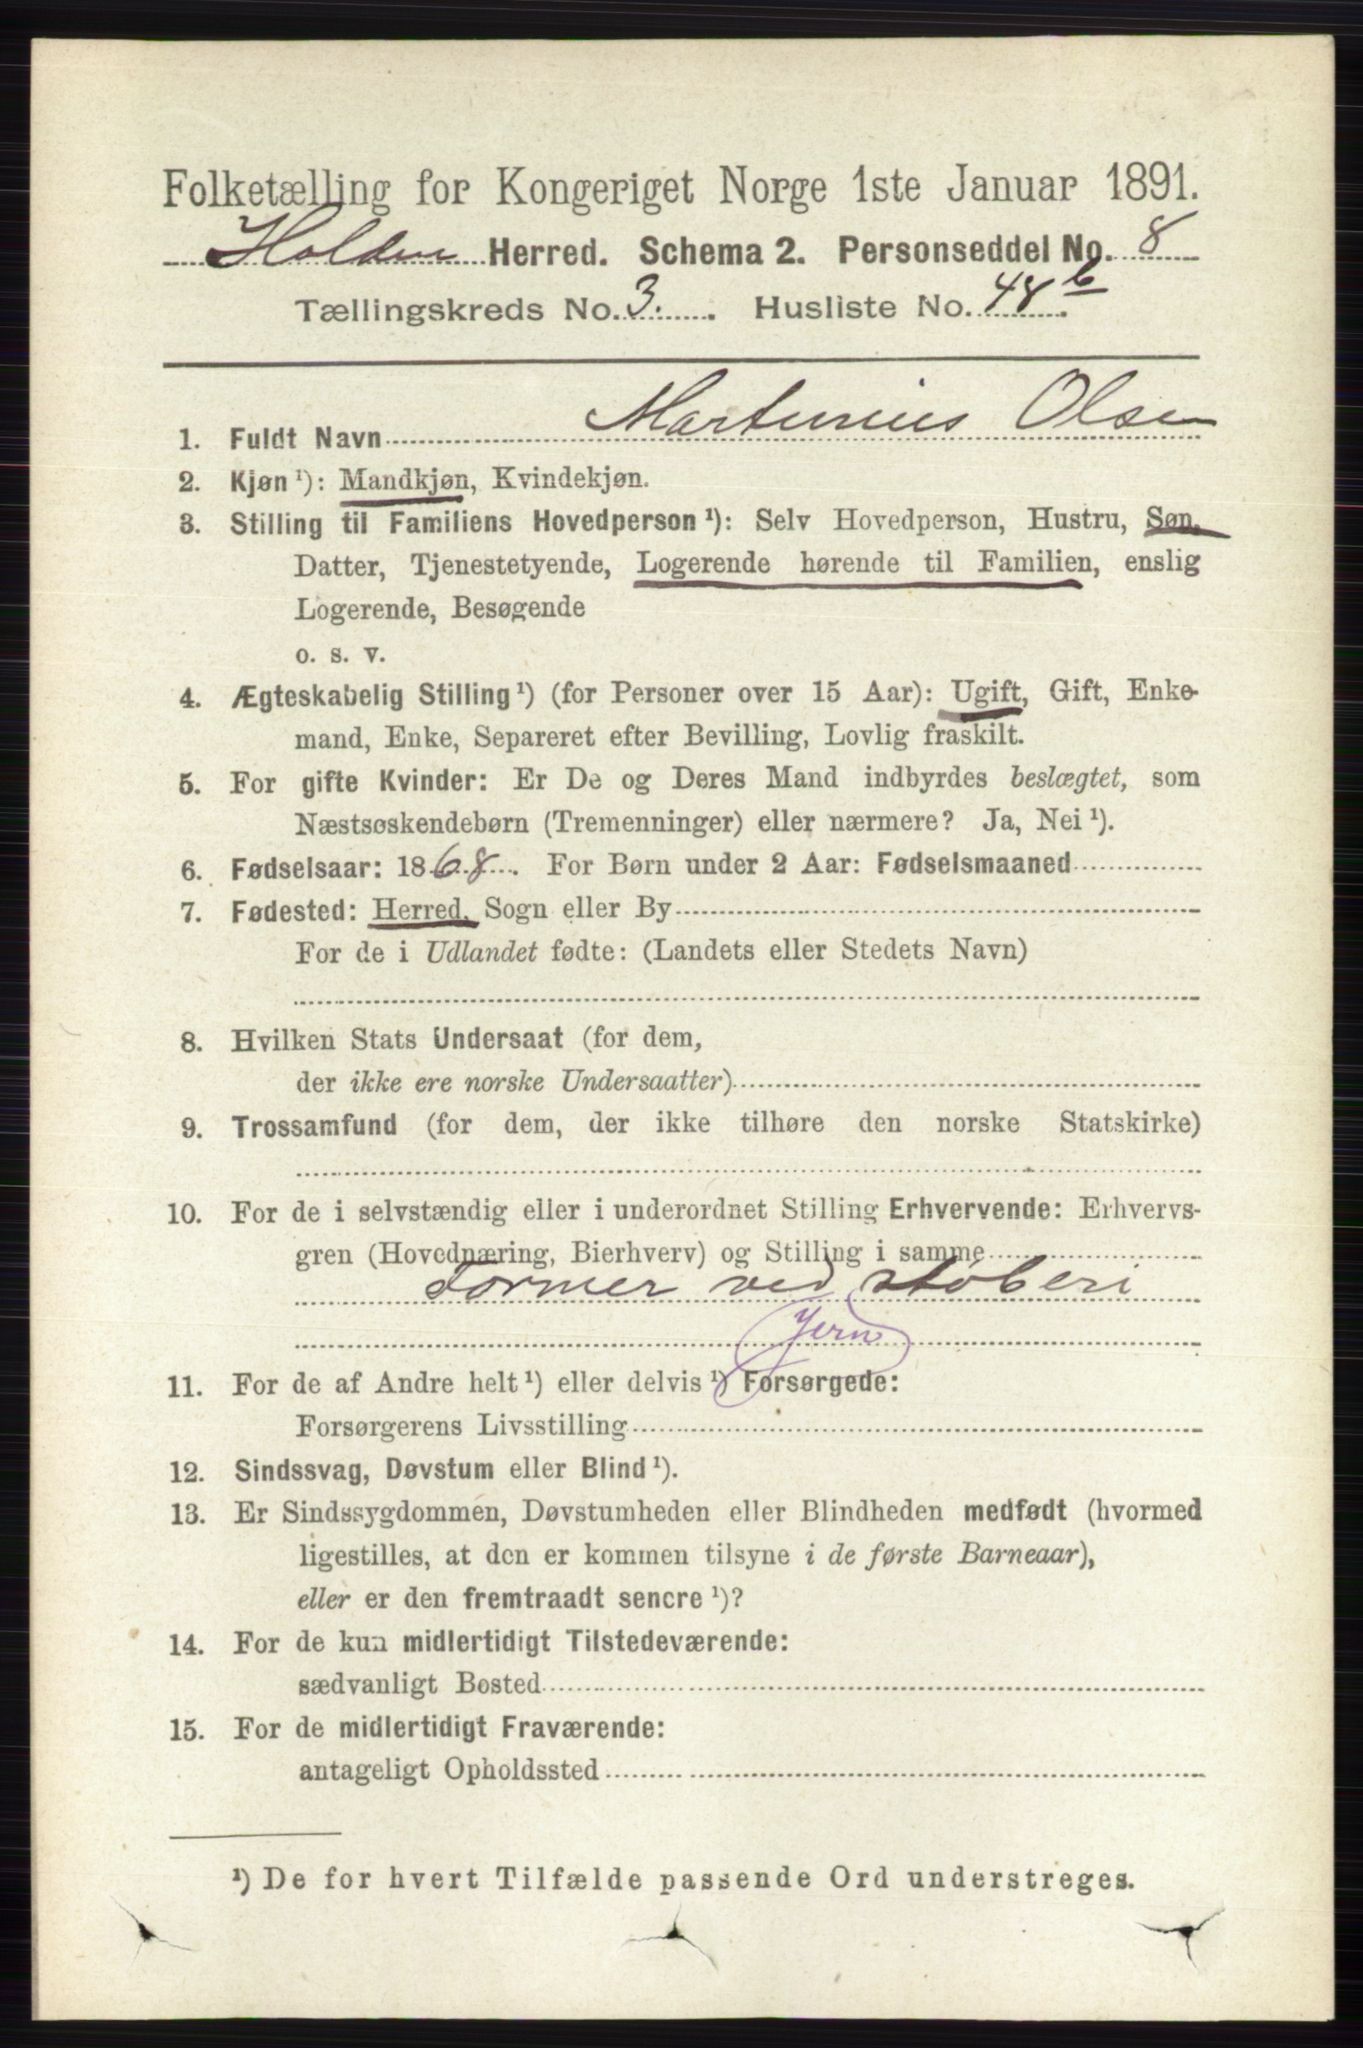 Folketælling for Kongeriget Norge 1ste Januar 1891.
Holden Herred. Schema 2. Personseddel No. 8
Tællingskreds No. 3. Husliste No. 48 b
1. Fuldt Navn Martinius Olsen
2. Kjøn ¹): Mandkjøn, Kvindekjøn.
3. Stilling til Familiens Hovedperson ¹): Selv Hovedperson, Hustru, Søn,
Datter, Tjenestetyende, Logerende hørende til Familien, enslig
Logerende, Besøgende
o. s. v.
4. Ægteskabelig Stilling ¹) (for Personer over 15 Aar): Ugift, Gift, Enke-
mand, Enke, Separeret efter Bevilling, Lovlig fraskilt.
5. For gifte Kvinder: Er De og Deres Mand indbyrdes beslægtet, som
Næstsøskendebørn (Tremenninger) eller nærmere? Ja, Nei ¹).
6. Fødselsaar: 1868. For Børn under 2 Aar: Fødselsmaaned
7. Fødested: Herred, Sogn eller By
For de i Udlandet fødte: (Landets eller Stedets Navn)
8. Hvilken Stats Undersaat (for dem,
der ikke ere norske Undersaatter)
9. Trossamfund (for dem, der ikke tilhøre den norske Statskirke)
10. For de i selvstændig eller i underordnet Stilling Erhvervende: Erhvervs-
gren (Hovednæring, Bierhverv) og Stilling i samme
Former ved støberi
Jern
11. For de af Andre helt ¹) eller delvis ¹) Forsørgede:
Forsørgerens Livsstilling
12. Sindssvag, Døvstum eller Blind ¹).
13. Er Sindssygdommen, Døvstumheden eller Blindheden medfødt (hvormed
ligestilles, at den er kommen tilsyne i de første Barneaar),
eller er den fremtraadt senere ¹)?
14. For de kun midlertidigt Tilstedeværende:
sædvanligt Bosted
15. For de midlertidigt Fraværende:
antageligt Opholdssted
¹) De for hvert Tilfælde passende Ord understreges.